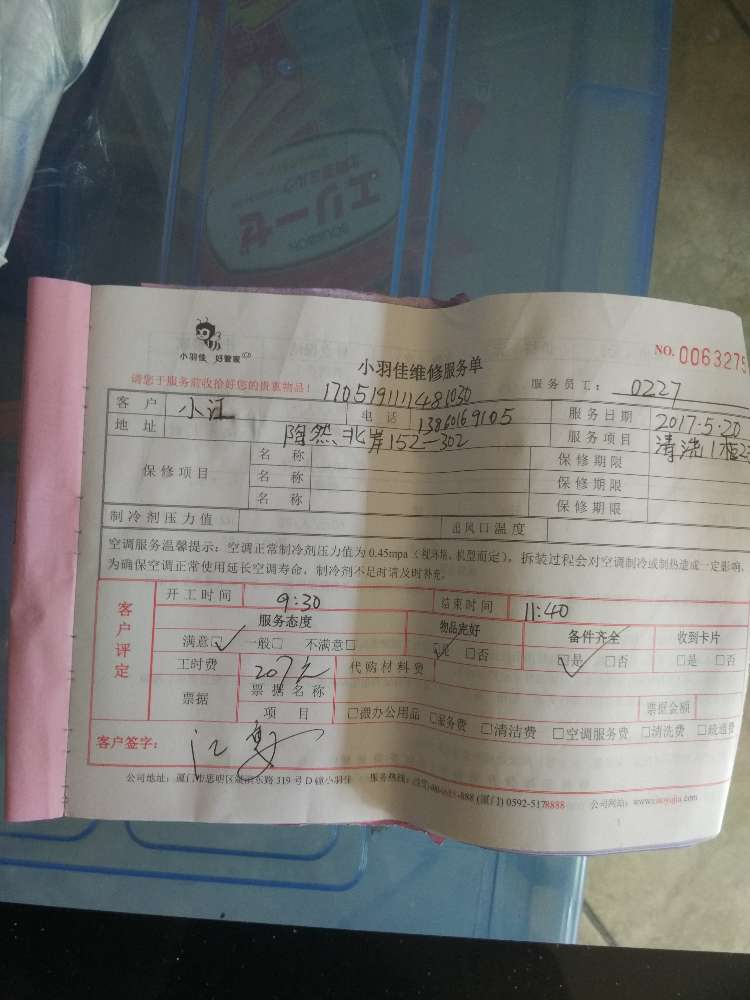 エリーゼ
小羽佳 好管家
小羽佳维修服务单
NO. 0063275
请您于服务前收拾好您的贵重物品！
1705191111481030
服务员工： 0227
客户 小江 电话 13860169105 服务日期 2017.5.20
地址 陶然北岸152-302 服务项目 清洗1柜2
保修项目 名称 保修期限
名称 保修期限
名称 保修期限
制冷剂压力值 出风口温度
空调服务温馨提示：空调正常制冷剂压力值为0.45mpa（视环境、机型而定），拆装过程会对空调制冷或制热造成一定影响，
为确保空调正常使用延长空调寿命，制冷剂不足时请及时补充。
客户评定
开工时间 9:30 结束时间 11:40
服务态度 物品完好 备件齐全 收到卡片
满意□ 一般□ 不满意□ □是 □否 □是 □否 □是 □否
工时费 207元 代购材料费
票据 票据名称 票据金额
项目 □微办公用品 □服务费 □清洁费 □空调服务费 □清洗费 □疏通费
客户签字： 江
公司地址：厦门市思明区湖滨东路319号D幢小羽佳 服务热线： (厦门) 0592-5178888 公司网站：www.xiaoyujia.com